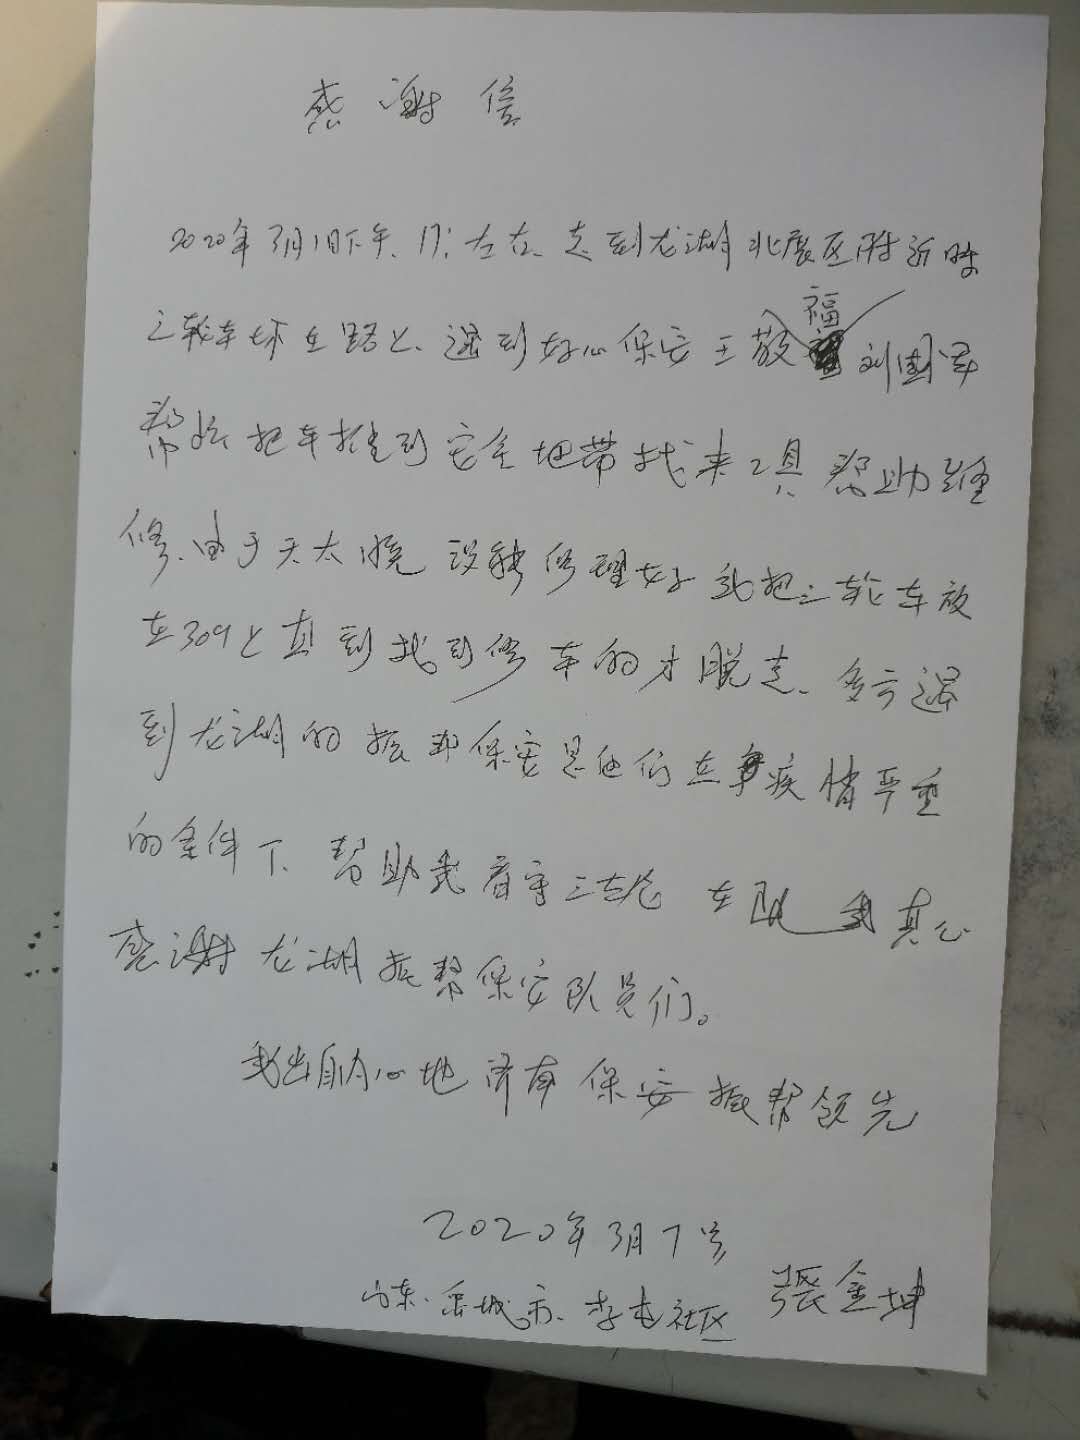 感谢信
2020年3月1日下午、17：左右、走到龙湖北展区附近时
三轮车坏在路上、遇到好心保安王敬福刘国军
帮忙把车推到安全地带找来工具帮助维
修、由于天太晚没能修理好我把三轮车放
在309上直到找到修车的才脱走、多亏遇
到龙湖的振邦保安是他们在疾情严重
的条件下、帮助我看守三在此我真心
感谢龙湖振帮保安队员们。
我出自内心地济南保安振帮领先
2020年3月7号
山东、禹城市、李屯社区 張金坤